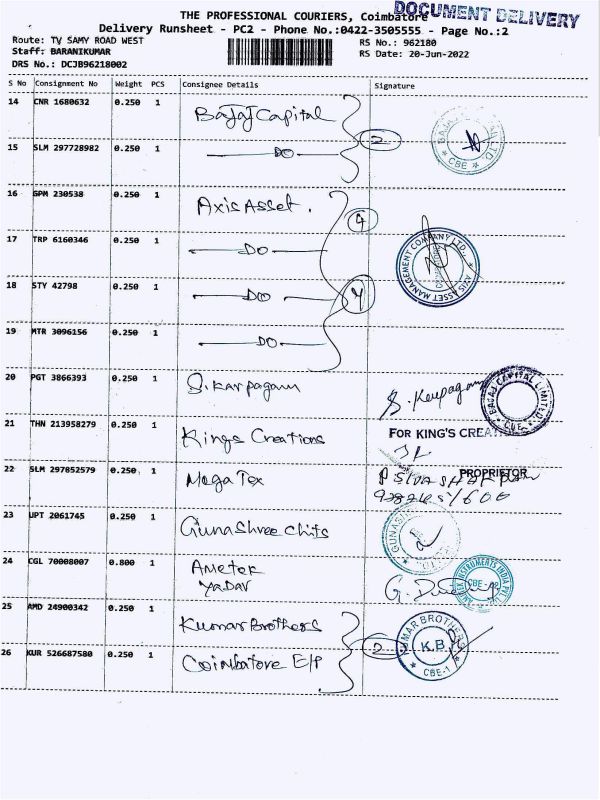 THE PROFESSIONAL COURIERS, Coimbatore
DOCUMENT DELIVERY
Delivery Runsheet - PC2 - Phone No.:0422-3505555 - Page No.:2
Route: TV SAMY ROAD WEST
RS No.: 962180
Staff: BARANIKUMAR
RS Date: 20-Jun-2022
DRS No.: DCJB96218002
S No Consignment No Weight PCS Consignee Details Signature
14 CNR 1680632 0.250 1 Bajaj Capital
15 SLM 297728982 0.250 1 DO 2
16 GPM 230538 0.250 1 Axis Asset.
17 TRP 6160346 0.250 1 DO
18 STY 42798 0.250 1 DO
19 MTR 3096156 0.250 1 DO
AXIS ASSET MANAGEMENT COMPANY LTD.
20 PGT 3866393 0.250 1 S. Karpagam
BAJAJ CAPITAL LIMITED CBE
21 THN 213958279 0.250 1 Kings Creations
FOR KING'S
22 SLM 297852579 0.250 1 Mega Tex
PROPRIETOR
23 UPT 2061745 0.250 1 Guna Shree Chits
24 CGL 70008007 0.800 1 Ametek
Yadav
25 AMD 24900342 0.250 1 Kumar Brothers
26 KUR 526687580 0.250 1 Coimbatore E/P 2
BROTHERS K.B. CBE-1